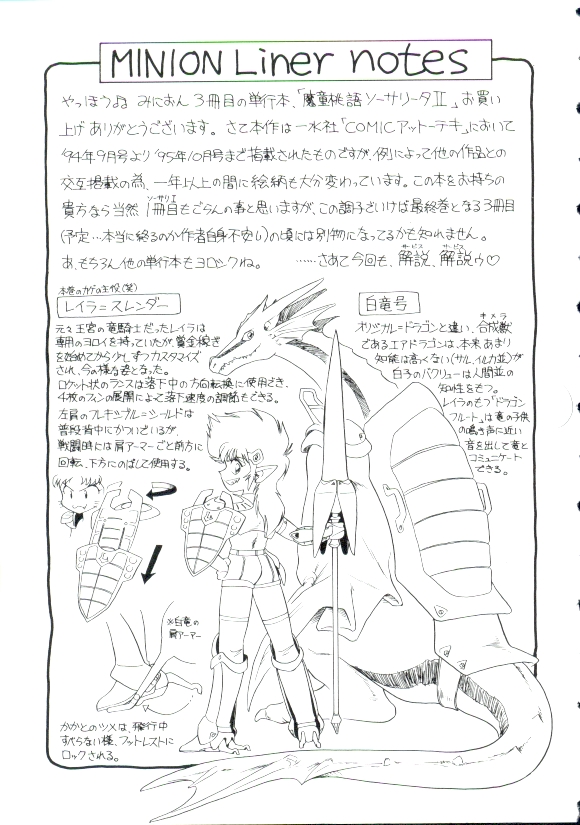 MINION Liner notes
やっほう♪ みにおん3冊目の単行本、「魔童桃語ソーサリータⅡ」お買い
上げありがとうございます。さて本作は一水社「COMICアットーテキ」において
'94年9月号より'95年10月号まで掲載されたものですが、例によって他の作品との
交互掲載の為、一年以上の間に絵柄も大分変わっています。この本をお持ちの
貴方なら当然1冊目もごらんの事と思いますが、この調子でいけば最終巻となる3冊目
(予定…本当に終るのか作者自身不安(い)の頃には別物になってるかも知れません。
あ、もちろん他の単行本もヨロシクね。 ……さあて今回も、解説、解説ゥ♡
本巻のカゲの主役(笑)
レイラ=スレンダー
元々王宮の竜騎士だったレイラは
専用のヨロイを持っていたが、賞金稼ぎ
を始めてから少しずつカスタマイズ
され、今の様な姿となった。
ロケット状のランスは落下中の方向転換に使用でき、
4枚のフィンの展開によって落下速度の調節もできる。
左肩のフレキシブル=シールドは
普段背中にかついでいるが、
戦闘時には肩アーマーごと前方に
回転、下方にのばして使用する。
※白竜の
肩アーマー
かかとのツメは、飛行中
すべらない様、フットレストに
ロックされる。
白竜号
オリジナル=ドラゴンと違い、合成獣
であるエアドラゴンは、本来あまり
知能は高くない(サル、イルカ並)が
白子のパクリューは人間並の
知性をもつ。
レイラのもつ「ドラゴン
フルート」は竜の子供
の鳴き声に近い
音を出して竜と
コミュニケート
できる。